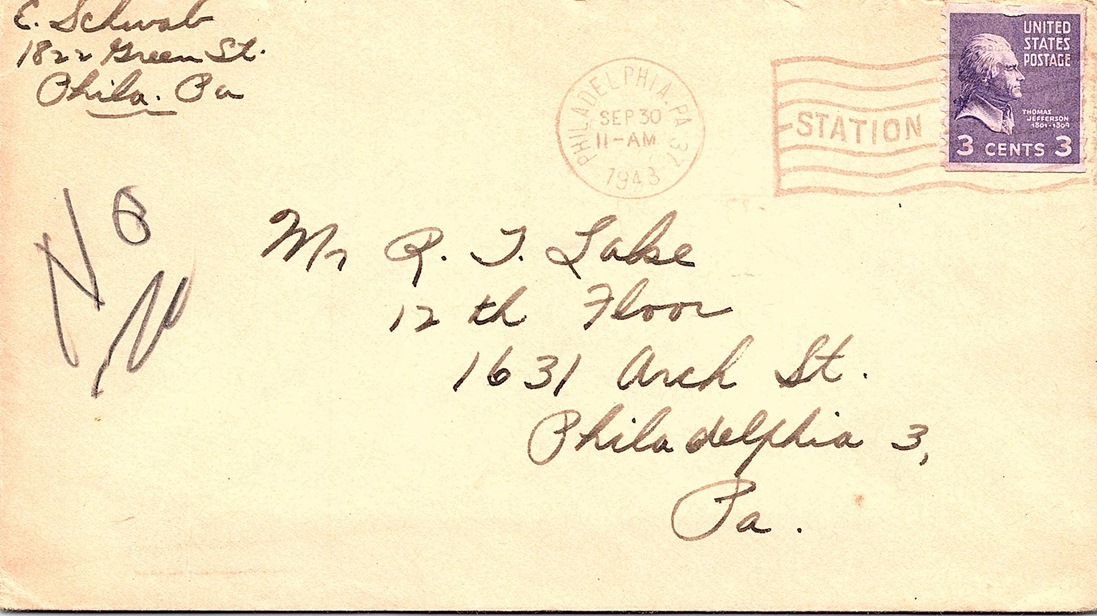 E. Schwab
1822 Green St.
Phila. Pa
PHILADELPHIA, PA 37
SEP 30
11-AM
1943
STATION
UNITED
STATES
POSTAGE
THOMAS
JEFFERSON
1801-1809
3 CENTS 3
No
Mr R. T. Lake
12 th Floor
1631 Arch St.
Philadelphia 3,
Pa.